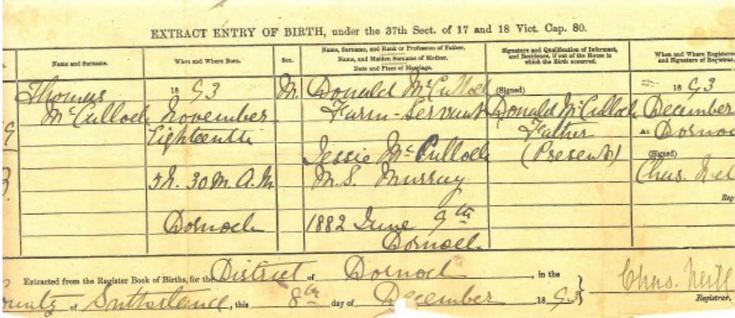 EXTRACT ENTRY OF BIRTH, under the 37th Sect. of 17 and 18 Vict. Cap. 80.
Name and Surname.
When and Where Born.
Sex.
Name, Surname, and Rank or Profession of Father.
Name, and Maiden Surname of Mother.
Date and Place of Marriage.
Signature and Qualification of Informant,
and Residence, if out of the House in
which the Birth occurred.
When and Where Registered
and Signature of Registrar.
Thomas
McCulloch
1893
November
Eighteenth
5h. 30m A.M
Dornoch
M.
Donald McCulloch
Farm-Servant
Jessie McCulloch
M.S. Murray
1882 June 9th
Dornoch
(Signed)
Donald McCulloch
Father
(Present)
1893
December
At Dornoch
(Signed)
Chas. Neill
Reg
Extracted from the Register Book of Births, for the District of Dornoch, in the
County of Sutherland, this 8th day of December 1893
Chas. Neill
Registrar.